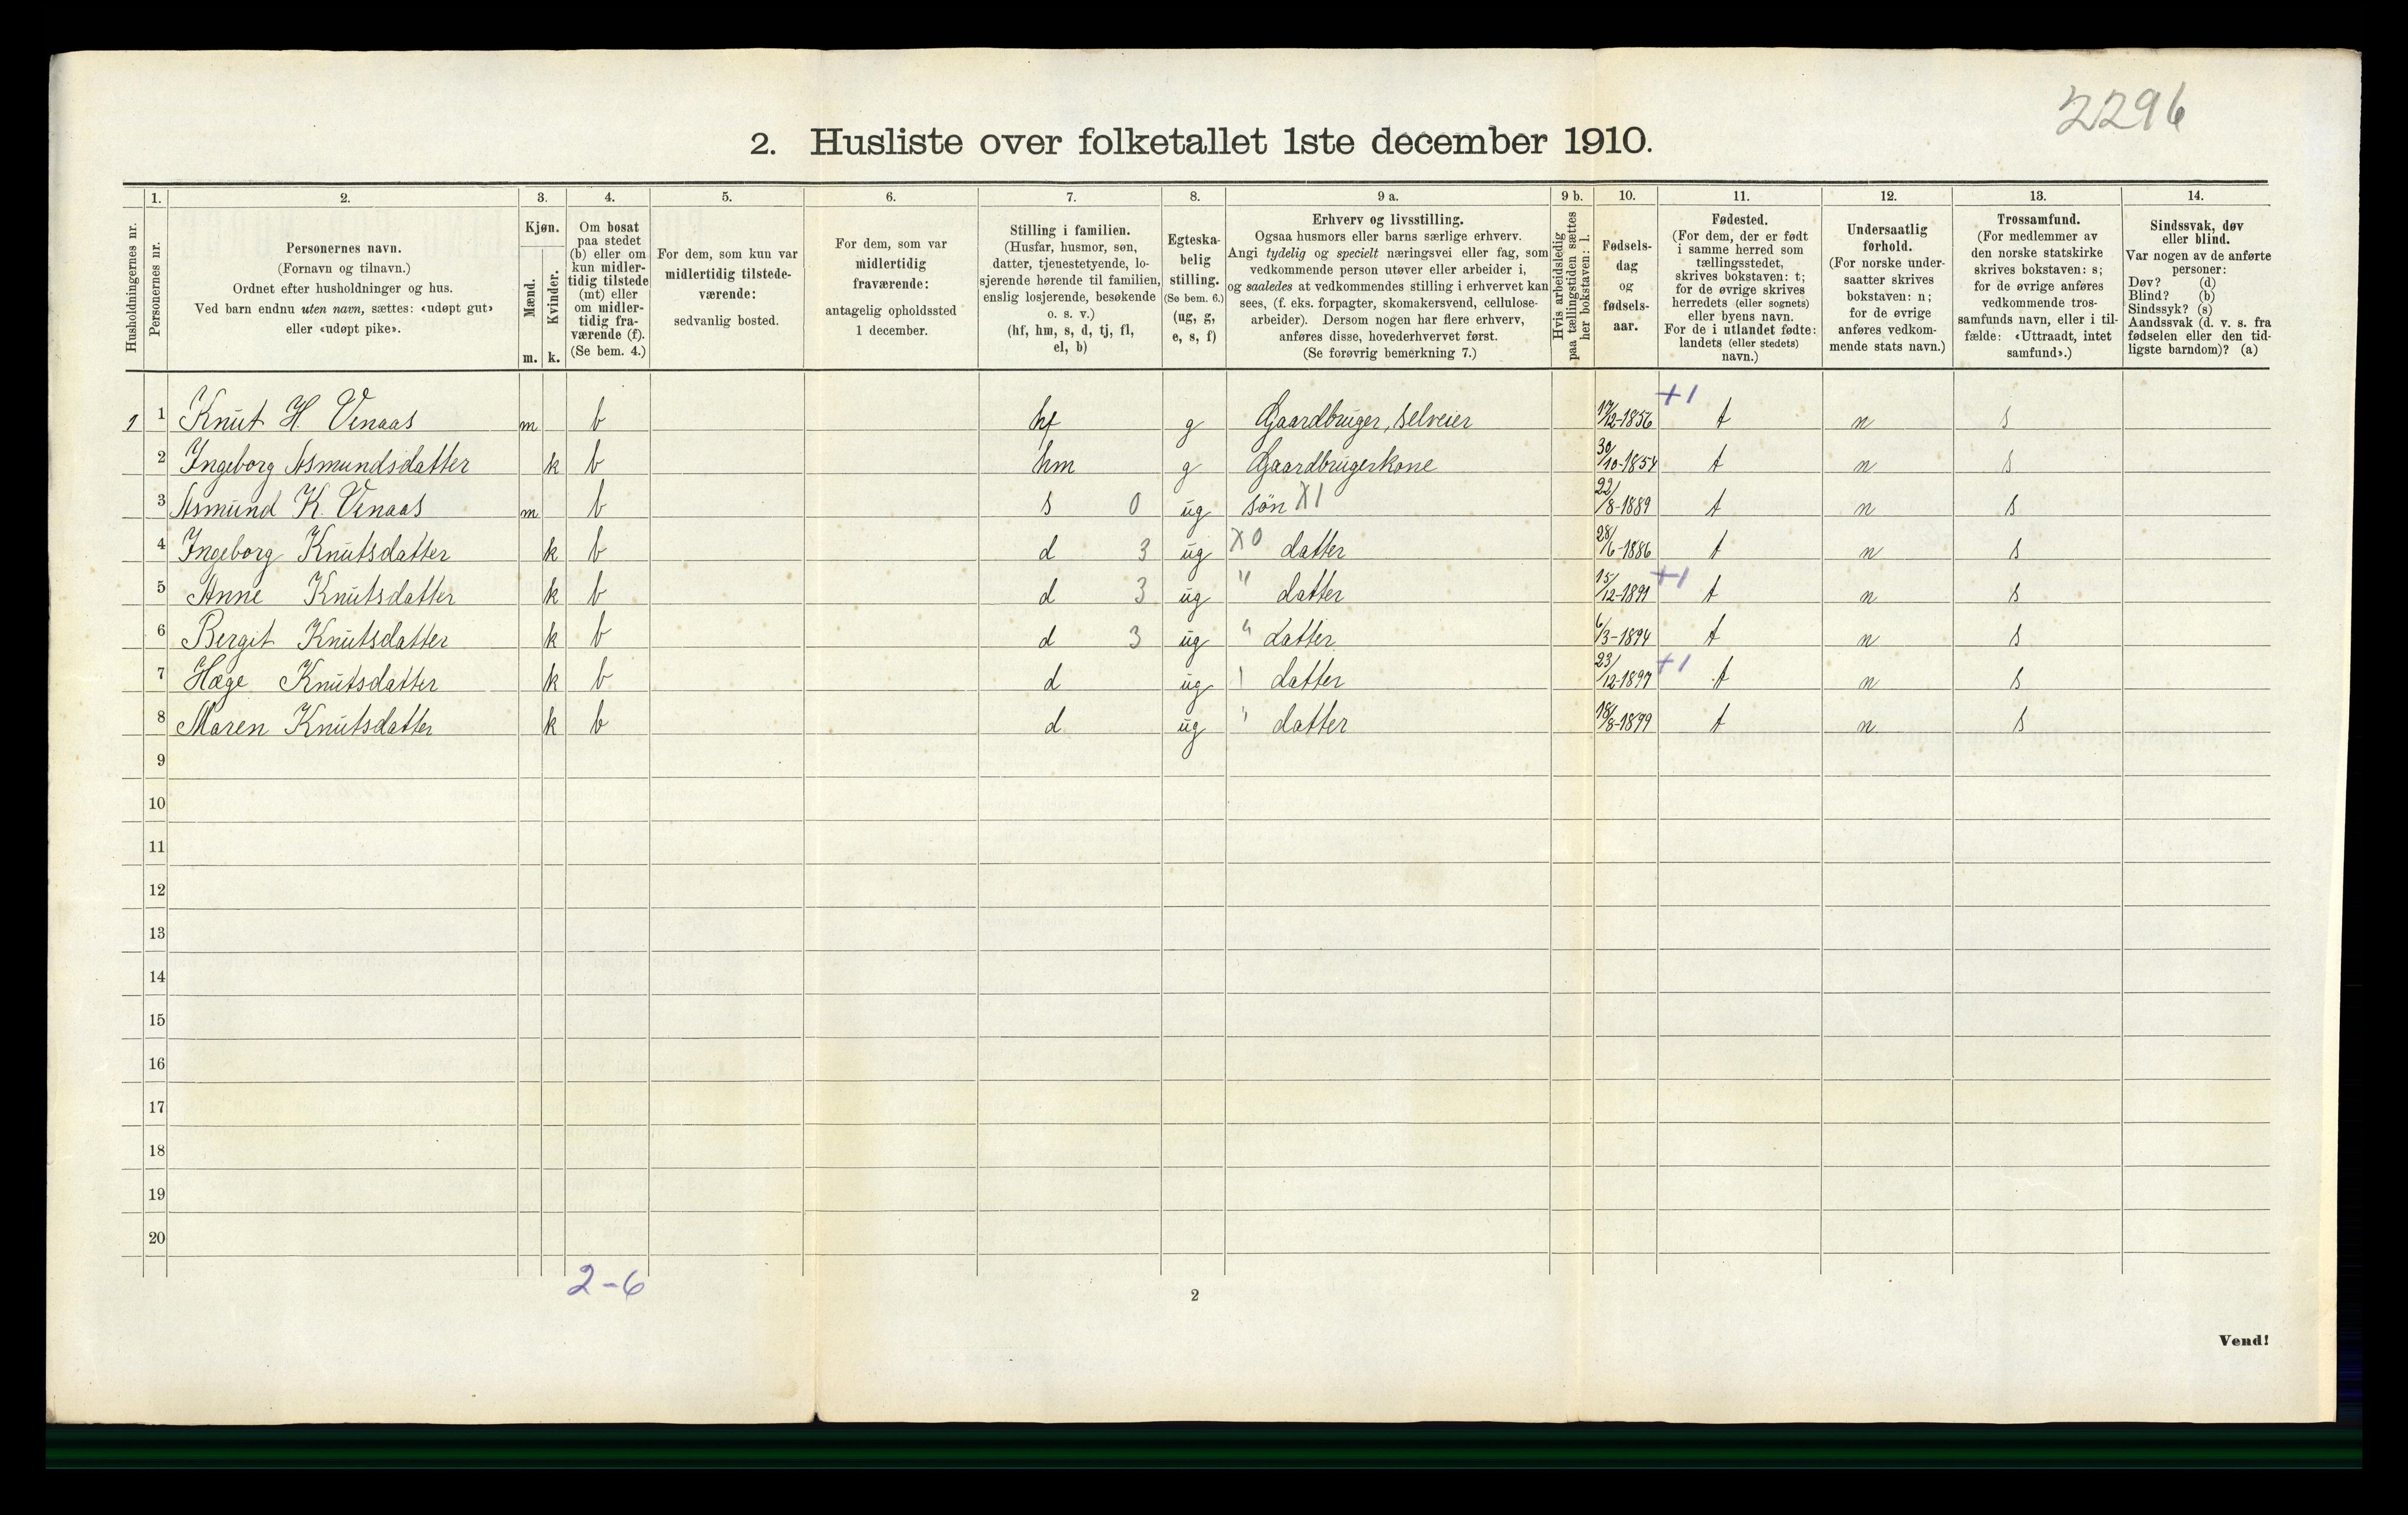 2296
2. Husliste over folketallet 1ste december 1910.
Husholdningernes nr.
1.
Personernes nr.
2.
Personernes navn.
(Fornavn og tilnavn.)
Ordnet efter husholdninger og hus.
Ved barn endnu uten navn, sættes: «udøpt gut»
eller «udøpt pike».
3.
Kjøn.
Mænd.
Kvinder.
m. k.
4.
Om bosat
paa stedet
(b) eller om
kun midler-
tidig tilstede
(mt) eller
om midler-
tidig fra-
værende (f).
(Se bem. 4.)
5.
For dem, som kun var
midlertidig tilstede-
værende:
sedvanlig bosted.
6.
For dem, som var
midlertidig
fraværende:
antagelig opholdssted
1 december.
7.
Stilling i familien.
(Husfar, husmor, søn,
datter, tjenestetyende, lo-
sjerende hørende til familien,
enslig losjerende, besøkende
o. s. v.)
(hf, hm, s, d, tj, fl,
el, b)
8.
Egteska-
belig
stilling.
(Se bem. 6.)
(ug, g,
e, s, f)
9 a.
Erhverv og livsstilling.
Ogsaa husmors eller barns særlige erhverv.
Angi tydelig og specielt næringsvei eller fag, som
vedkommende person utøver eller arbeider i,
og saaledes at vedkommendes stilling i erhvervet kan
sees, (f. eks. forpagter, skomakersvend, cellulose-
arbeider). Dersom nogen har flere erhverv,
anføres disse, hovederhvervet først.
(Se forøvrig bemerkning 7.)
9 b.
Hvis arbeidsledig
paa tællingstiden sættes
her bokstaven: l.
10.
Fødsels-
dag
og
fødsels-
aar.
11.
Fødested.
(For dem, der er født
i samme herred som
tællingsstedet,
skrives bokstaven: t;
for de øvrige skrives
herredets (eller sognets)
eller byens navn.
For de i utlandet fødte:
landets (eller stedets)
navn.)
12.
Undersaatlig
forhold.
(For norske under-
saatter skrives
bokstaven: n;
for de øvrige
anføres vedkom-
mende stats navn.)
13.
Trossamfund.
(For medlemmer av
den norske statskirke
skrives bokstaven: s;
for de øvrige anføres
vedkommende tros-
samfunds navn, eller i til-
fælde: «Uttraadt, intet
samfund».)
14.
Sindssvak, døv
eller blind.
Var nogen av de anførte
personer:
Døv? (d)
Blind? (b)
Sindssyk? (s)
Aandssvak (d. v. s. fra
fødselen eller den tid-
ligste barndom)? (a)
1 1 Knut H. Venaas m b hf g Gaardbruger, selveier 17/12-1856 +1 t n s
2 Ingeborg Asmundsdatter k b hm g Gaardbrugerkone 30/10-1854 t n s
3 Asmund K. Venaas m b s 0 ug søn X1 22/8-1889 t n s
4 Ingeborg Knutsdatter k b d 3 ug X0 datter 28/6-1886 t n s
5 Anne Knutsdatter k b d 3 ug " datter 15/12-1891 +1 t n s
6 Berget Knutsdatter k b d 3 ug " datter 6/3-1894 t n s
7 Hæge Knutsdatter k b d ug " datter 23/12-1897 +1 t n s
8 Maren Knutsdatter k b d ug " datter 18/8-1899 t n s
9
10
11
12
13
14
15
16
17
18
19
20
2-6
2
Vend!